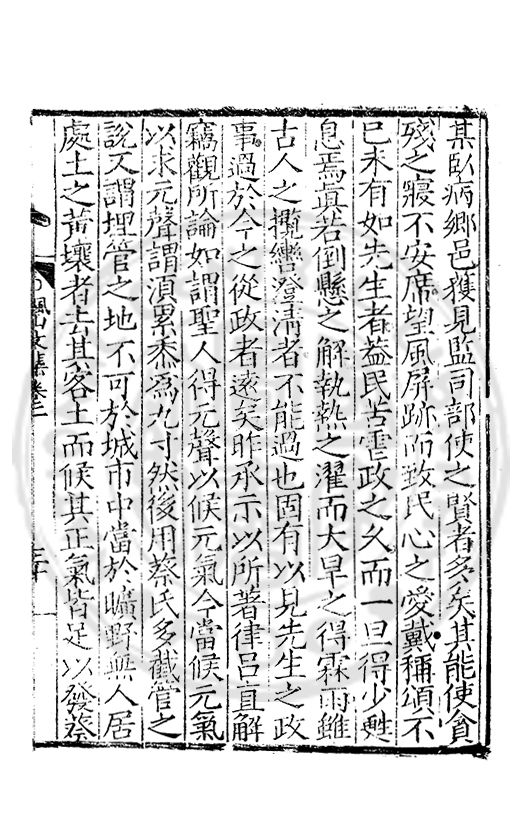 某臥病鄉邑獲見監司部使之賢者多矣其能使貪
殘之寢不安席望風屏跡而致民心之愛戴稱頌不
已未有如先生者葢民苦雪政之久而一旦得少甦
息焉眞若倒懸之解執熱之濯而大旱之得霖雨雖
古人之攬轡澄清者不能過也固有以見先生之政
事過於今之從政者遠矣昨承示以所著律吕直解
竊觀所論如謂聖人得元聲以候元氣今當候元氣
以求元聲謂須累黍爲九寸然後用蔡氏多截管之
說又謂埋管之地不可於城市中當於曠野無人居
處土之黄壤者去其客土而候其正氣皆足以發蔡
楓山文集卷二